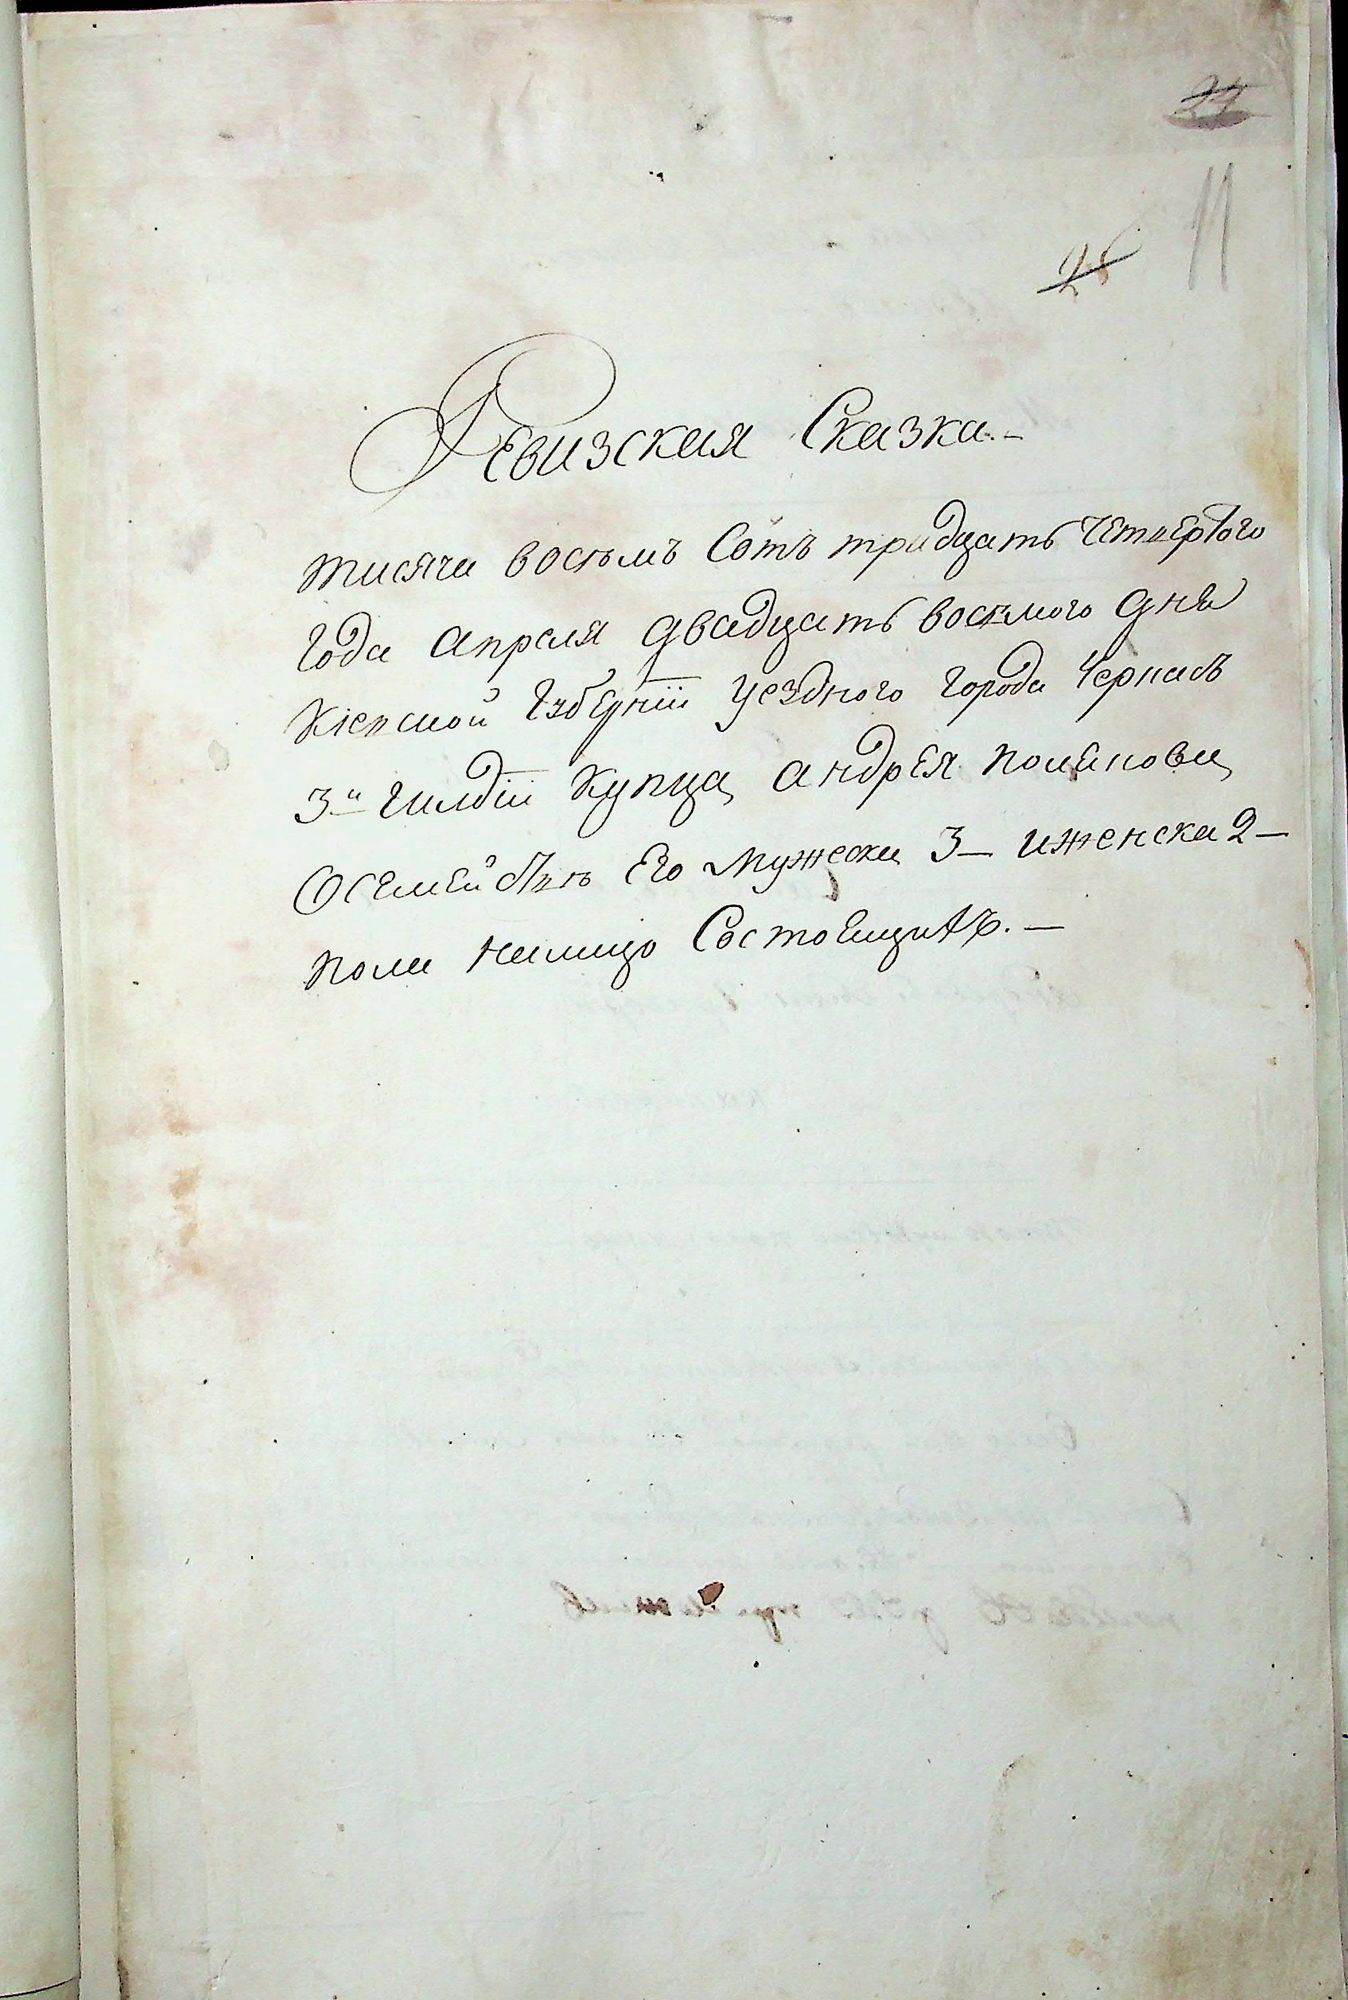 28
11
Ревизская Сказка.—
тисяча восемъ Сотъ тридцать Четвертого
Года апреля двадцать восемого дня
Кіевской Губерніи уездного города Черкасъ
3й Гилдіи Купца Андрея
О семействе Его Мужеска 3— и женска 2—
пола налицо Состоящихъ.—